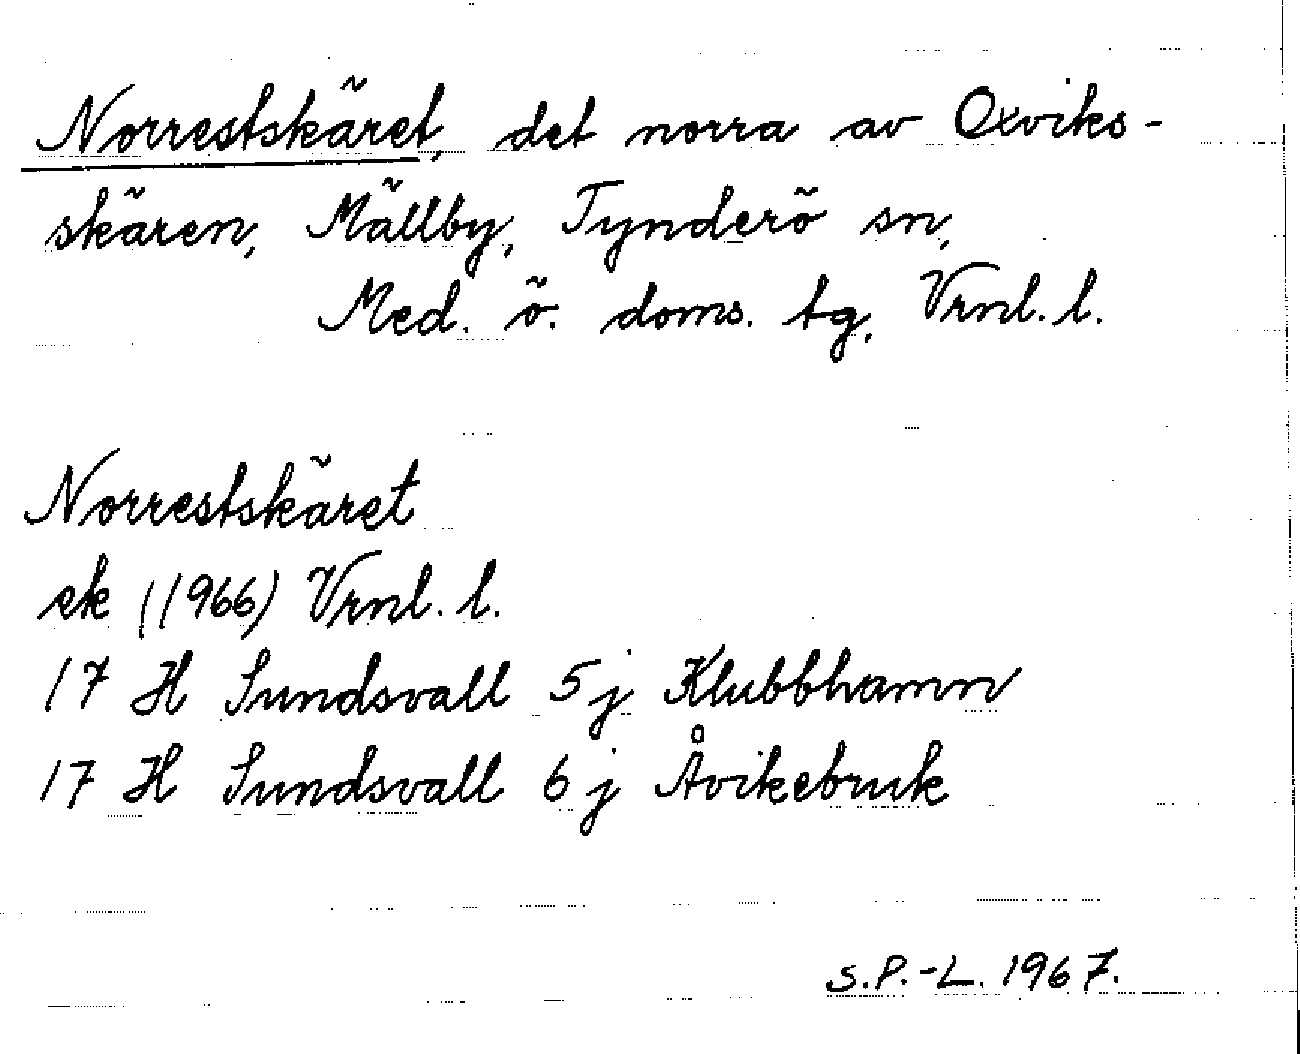 Norrestskäret, det norra av Oxviks-
skären, Mällby, Tynderö sn,
Med. ö. doms. tg, Vrnl. l.
Norrestskäret
ek (1966) Vrnl. l.
17 H Sundsvall 5 j Klubbhamn
17 H Sundsvall 6 j Åvikebruk
S.P.-L. 1967.